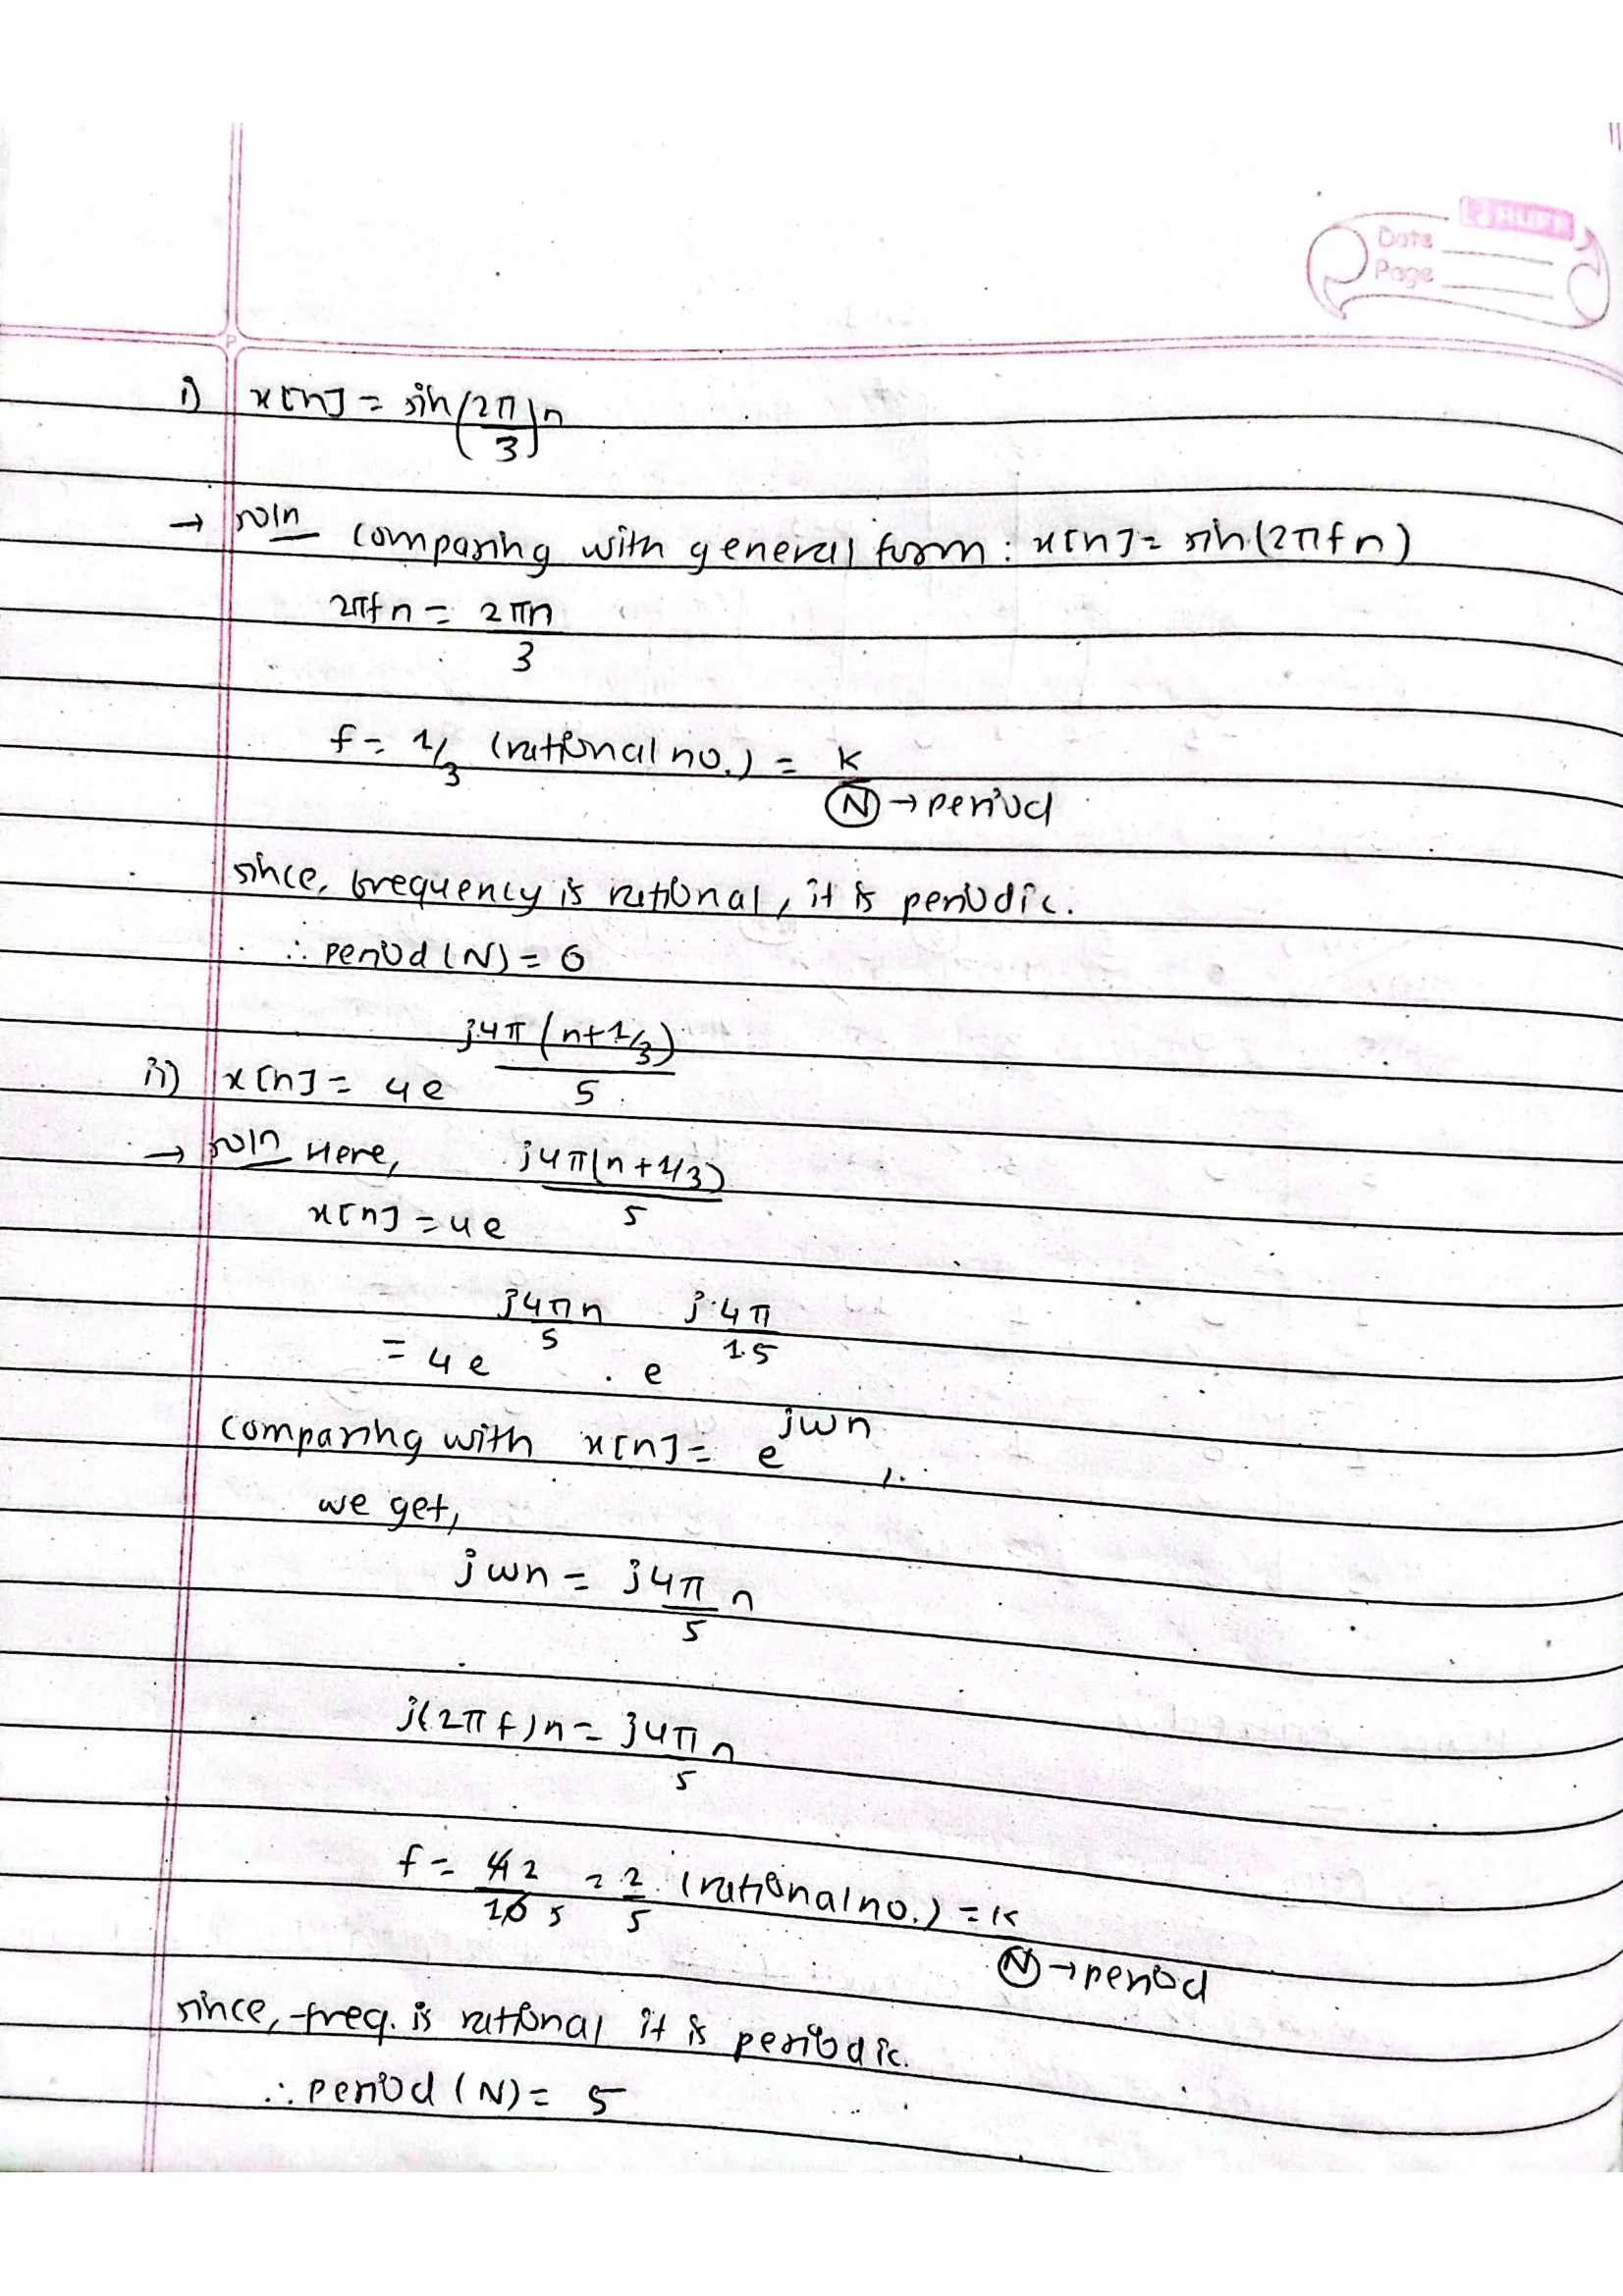 Date
Page
i) x[n] = sin(2π/3)n
→ soln comparing with general form : x[n] = sin(2πfn)
2πfn = 2πn/3
f = 1/3 (rational no.) = K/N → period
since, frequency is rational, it is periodic.
∴ period (N) = 6
ii) x[n] = 4e^(j4π(n+1/3)/5)
→ soln Here,
x[n] = 4e^(j4π(n+1/3)/5)
= 4e^(j4πn/5) . e^(j4π/15)
comparing with x[n] = e^(jωn),
we get,
jωn = j4π/5 n
j(2πf)n = j4π/5 n
f = 4 2/10 5 = 2/5 (rational no.) = K/N → period
since, freq. is rational it is periodic.
∴ period (N) = 5